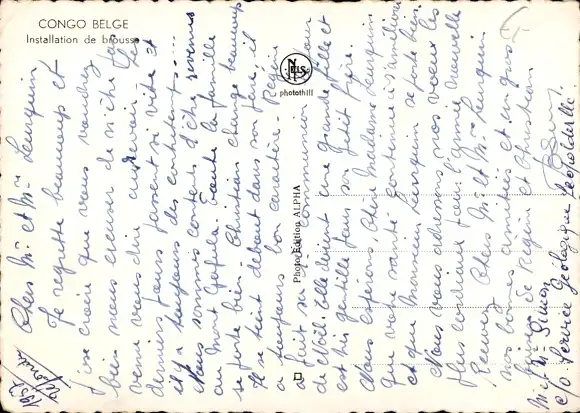 CONGO BELGE
Installation de brousse
NELS
photothill
Photo Edition ALPHA
1957
Chers Mr et Mme Leurquin
Je regrette beaucoup et
j'ose croire que vous voudrez
bien nous excuser de n'être pas
venus dire au revoir. Les
derniers jours passent si vite et
il y a toujours des contretemps...
Nous sommes contents d'être revenus
au Mont Gafula. Toute la famille
se porte bien. Christian change beaucoup
Il se tient debout dans son parc, il
a toujours bon caractère. Régine
a fait sa communion le jour
de Noël. Elle devient une grande fille et
est très gentille pour son petit frère.
Nous espérons, Chère Madame Leurquin
que votre santé continue à s'améliorer
et que Monsieur Leurquin se porte bien.
Nous vous adressons nos vœux les
plus cordiaux pour l'année nouvelle
Recevez Chers Mr et Mme Leurquin
nos bonnes amitiés et un gros
de Régine et Christian
Mr et Mme Simon
c/o Service Géologique Léopoldville